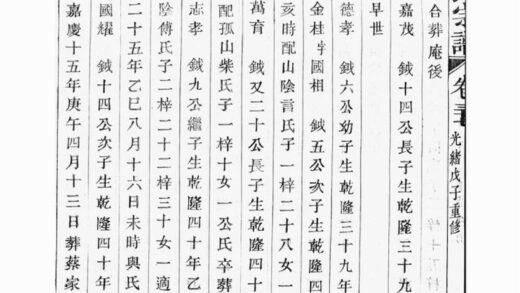 宗譜 卷三 光緒戊子重修
合葬庵後
嘉茂 鉞十四公長子生乾隆三十九
早世
德孝 鉞六公幼子生乾隆三十九年
金桂字國相 鉞五公次子生乾隆四
亥時配山陰言氏子一梓二十八女一
萬育 鉞又二十公長子生乾隆四十
配孤山柴氏子一梓十女一公氏卒葬
志孝 鉞九公繼子生乾隆四十年乙
陰傅氏子二梓二十二梓三十女一適
二十五年乙巳八月十六日未時與氏
國耀 鉞十四公次子生乾隆四十年
嘉慶十五年庚午四月十三日葬蔡家